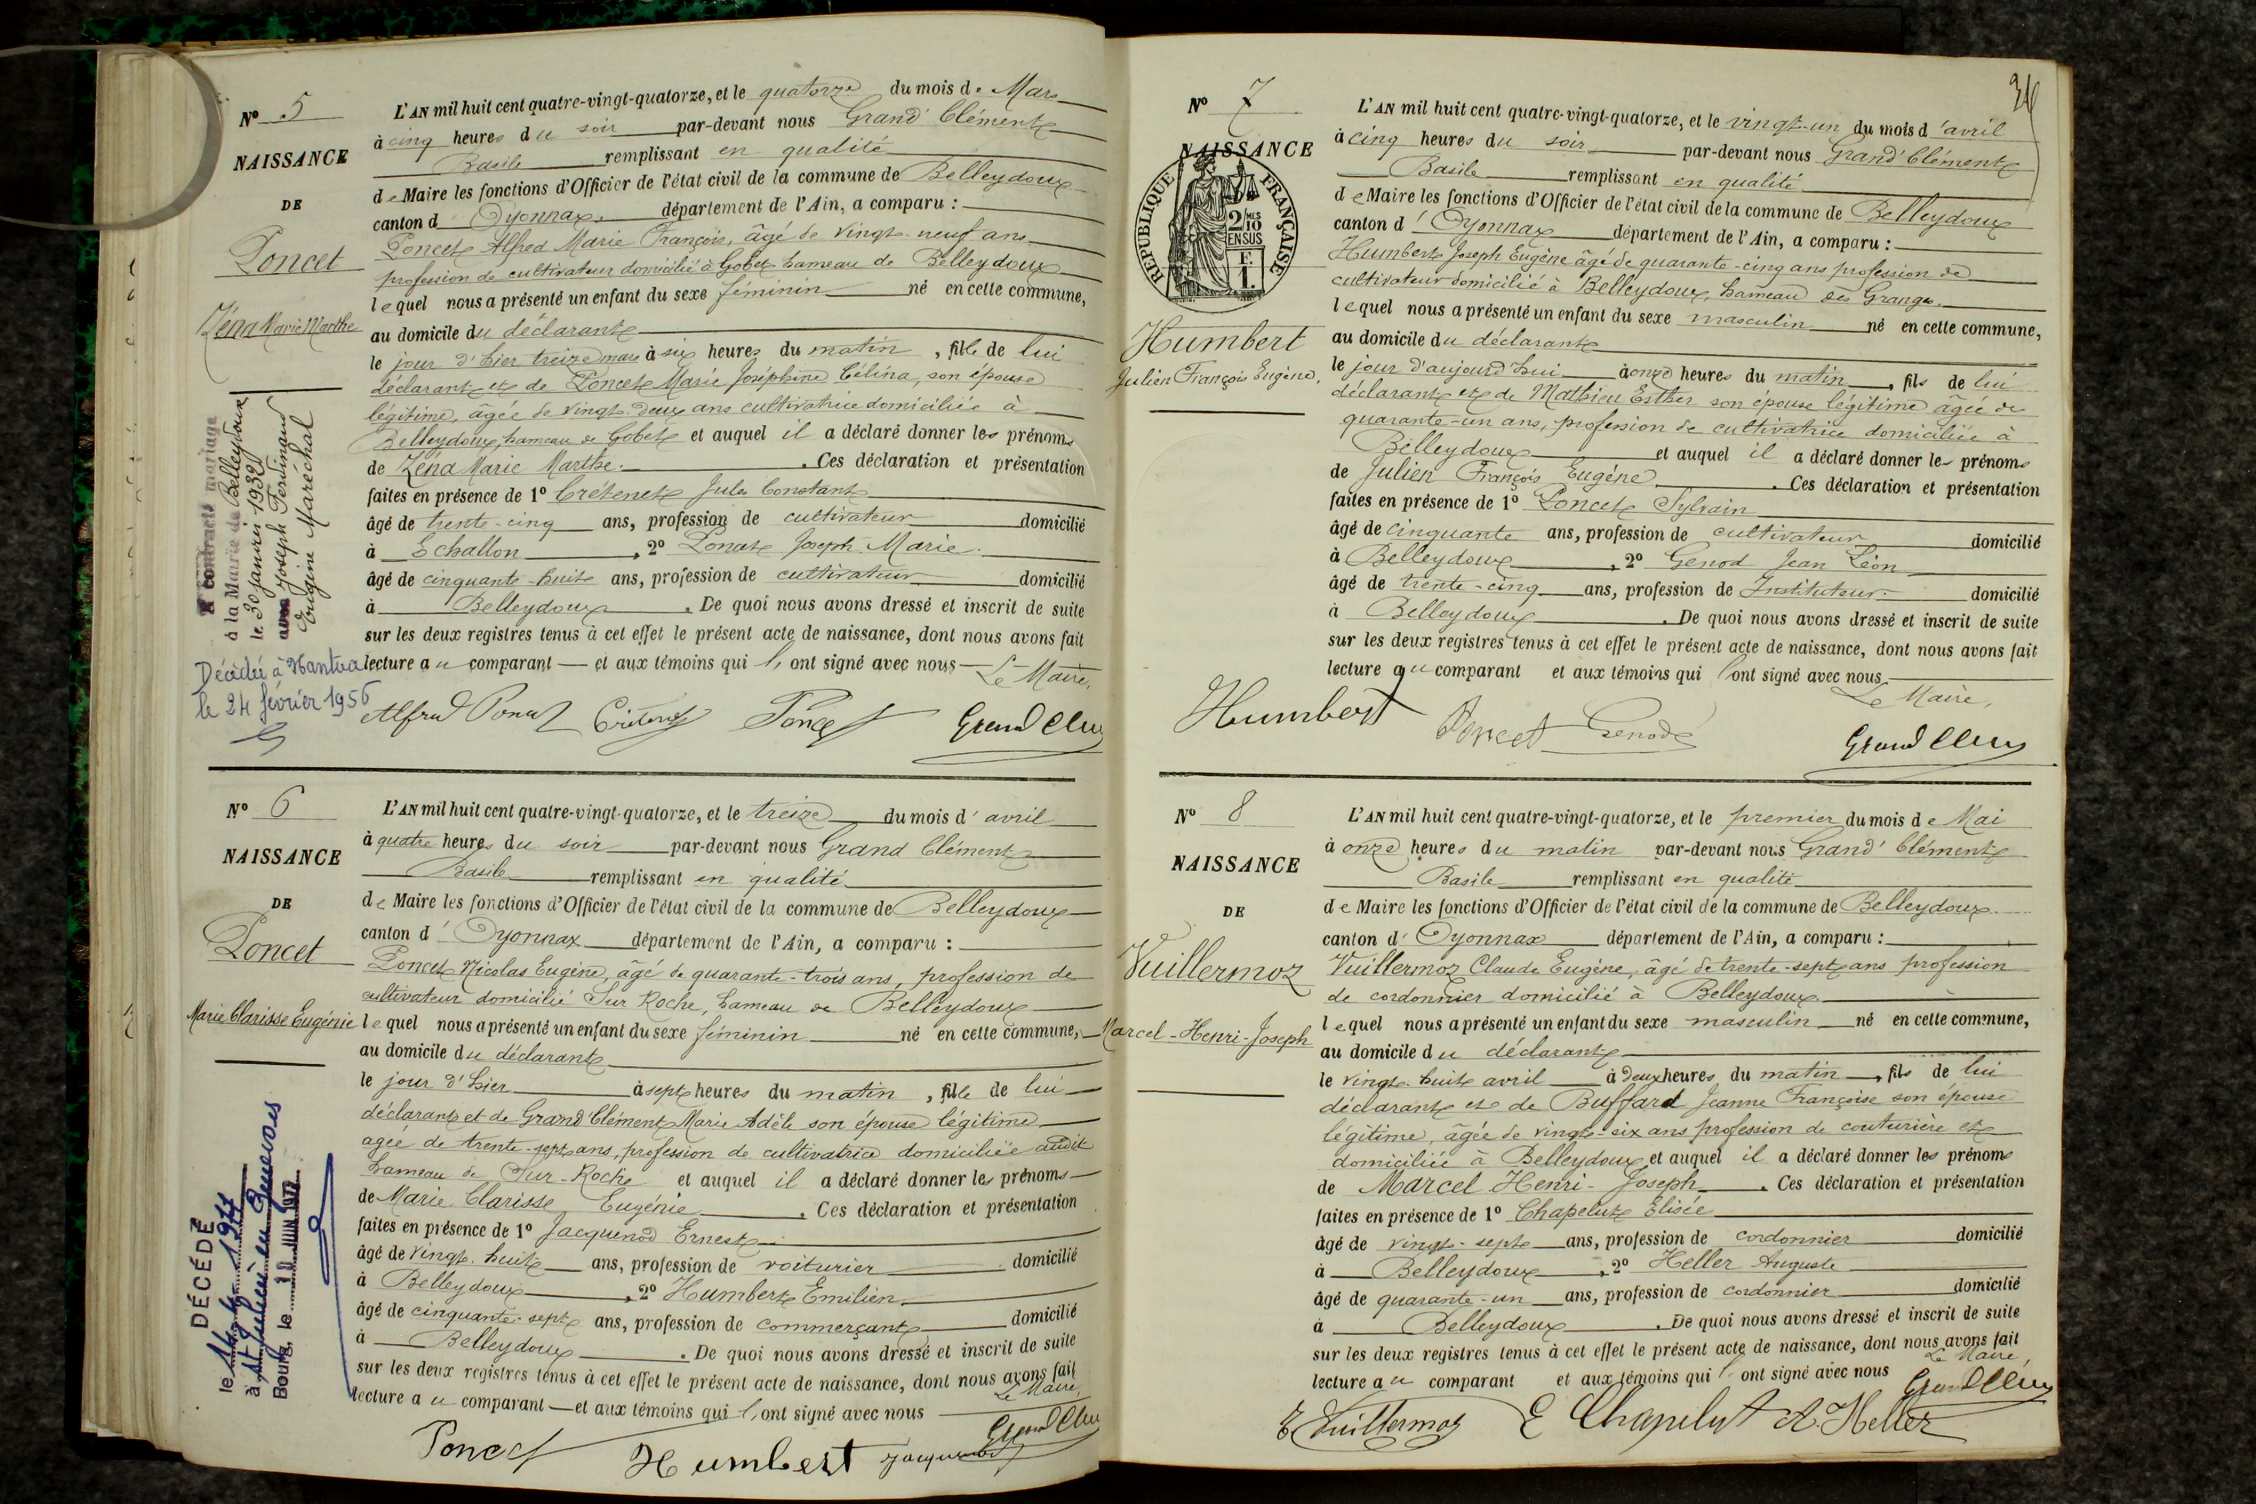 N° 5
NAISSANCE
DE
Poncet
Zéna Marie Marthe
A contracté mariage
à la Mairie de Belleydoux
le 30 janvier 1932
avec Joseph Ferdinand
Eugène Maréchal
Décédée à Nantua
le 24 février 1956
L'AN mil huit cent quatre-vingt-quatorze, et le quatorze du mois de Mars
à cinq heures du soir par-devant nous Grand' Clément
Basile remplissant en qualité
de Maire les fonctions d'Officier de l'état civil de la commune de Belleydoux
canton d' Oyonnax département de l'Ain, a comparu :
Poncet Alfred Marie François, âgé de vingt-neuf ans
profession de cultivateur domicilié à Gobet hameau de Belleydoux
lequel nous a présenté un enfant du sexe féminin né en cette commune,
au domicile du déclarant
le jour d'hier treize mars à six heures du matin, fille de lui
déclarant et de Poncet Marie Joséphine Célina, son épouse
légitime, âgée de vingt-deux ans cultivatrice domiciliée à
Belleydoux, hameau de Gobet et auquel il a déclaré donner les prénoms
de Zéna Marie Marthe. Ces déclaration et présentation
faites en présence de 1° Crétenet Jules Constant
âgé de trente-cinq ans, profession de cultivateur domicilié
à Echallon, 2° Ponat Joseph Marie
âgé de cinquante-huit ans, profession de cultivateur domicilié
à Belleydoux. De quoi nous avons dressé et inscrit de suite
sur les deux registres tenus à cet effet le présent acte de naissance, dont nous avons fait
lecture au comparant et aux témoins qui l'ont signé avec nous Le Maire,
Alfred Poncet Crétenet Poncet Grand Clém
N° 6
NAISSANCE
DE
Poncet
Marie Clarisse Eugénie
DÉCÉDÉ
à St Julien en Genevois
Bourg, le JUIN 1977
L'AN mil huit cent quatre-vingt-quatorze, et le treize du mois d'avril
à quatre heures du soir par-devant nous Grand Clément
Basile remplissant en qualité
de Maire les fonctions d'Officier de l'état civil de la commune de Belleydoux
canton d' Oyonnax département de l'Ain, a comparu :
Poncet Nicolas Eugène, âgé de quarante-trois ans, profession de
cultivateur domicilié Sur Roche, hameau de Belleydoux
lequel nous a présenté un enfant du sexe féminin né en cette commune,
au domicile du déclarant
le jour d'hier à sept heures du matin, fille de lui
déclarant et de Grand'Clément Marie Adèle son épouse légitime
agée de trente-sept ans, profession de cultivatrice domiciliée audit
hameau de Sur-Roche et auquel il a déclaré donner les prénoms
de Marie Clarisse Eugénie. Ces déclaration et présentation
faites en présence de 1° Jacquenod Ernest
âgé de vingt-huit ans, profession de voiturier domicilié
à Belleydoux, 2° Humbert Emilien
âgé de cinquante-sept ans, profession de commerçant domicilié
à Belleydoux. De quoi nous avons dressé et inscrit de suite
sur les deux registres tenus à cet effet le présent acte de naissance, dont nous avons fait
lecture au comparant et aux témoins qui l'ont signé avec nous Le Maire,
Poncet Humbert Jacquenod Grand Clém
N° 7
NAISSANCE
REPUBLIQUE FRANÇAISE
2/10MES
EN SUS
F
1.
Humbert
Julien François Eugène.
L'AN mil huit cent quatre-vingt-quatorze, et le vingt-un du mois d'avril
à cinq heures du soir par-devant nous Grand'Clément
Basile remplissant en qualité
de Maire les fonctions d'Officier de l'état civil de la commune de Belleydoux
canton d' Oyonnax département de l'Ain, a comparu :
Humbert Joseph Eugène âgé de quarante-cinq ans profession de
cultivateur domicilié à Belleydoux, hameau des Granges
lequel nous a présenté un enfant du sexe masculin né en cette commune,
au domicile du déclarant
le jour d'aujourd'hui à onze heures du matin, fils de lui
déclarant et de Mathieu Esther son épouse légitime âgée de
quarante-un ans, profession de cultivatrice domiciliée à
Belleydoux et auquel il a déclaré donner les prénoms
de Julien François Eugène. Ces déclaration et présentation
faites en présence de 1° Poncet Sylvain
âgé de cinquante ans, profession de cultivateur domicilié
à Belleydoux, 2° Genod Jean Léon
âgé de trente-cinq ans, profession de Instituteur domicilié
à Belleydoux. De quoi nous avons dressé et inscrit de suite
sur les deux registres tenus à cet effet le présent acte de naissance, dont nous avons fait
lecture au comparant et aux témoins qui l'ont signé avec nous
Le Maire,
Humbert Poncet Genod Grand Clém
N° 8
NAISSANCE
DE
Vuillermoz
Marcel-Henri-Joseph
L'AN mil huit cent quatre-vingt-quatorze, et le premier du mois de Mai
à onze heures du matin par-devant nous Grand' Clément
Basile remplissant en qualité
de Maire les fonctions d'Officier de l'état civil de la commune de Belleydoux
canton d' Oyonnax département de l'Ain, a comparu :
Vuillermoz Claude Eugène, âgé de trente-sept ans profession
de cordonnier domicilié à Belleydoux
lequel nous a présenté un enfant du sexe masculin né en cette commune,
au domicile du déclarant
le vingt-huit avril à deux heures du matin, fils de lui
déclarant et de Buffard Jeanne Françoise son épouse
légitime, âgée de vingt-six ans profession de couturière et
domiciliée à Belleydoux et auquel il a déclaré donner les prénoms
de Marcel Henri-Joseph. Ces déclaration et présentation
faites en présence de 1° Chapelut Elisée
âgé de vingt-sept ans, profession de cordonnier domicilié
à Belleydoux, 2° Heller Auguste
âgé de quarante-un ans, profession de cordonnier domicilié
à Belleydoux. De quoi nous avons dressé et inscrit de suite
sur les deux registres tenus à cet effet le présent acte de naissance, dont nous avons fait
lecture au comparant et aux témoins qui l'ont signé avec nous Le Maire,
E Vuillermoz E Chapelut A. Heller Grand Clém